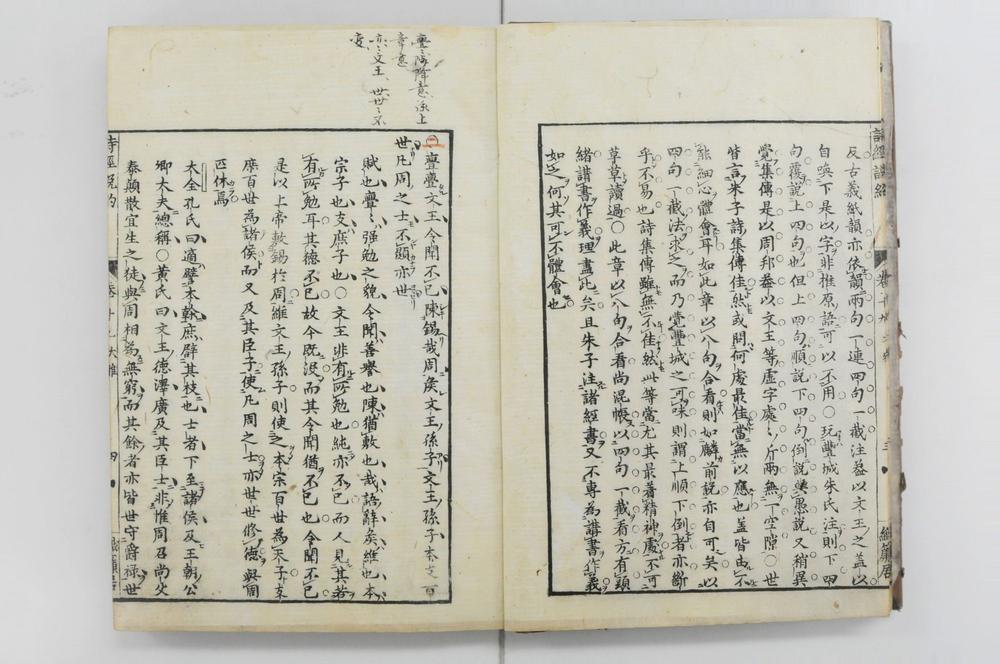 反古義紙韻亦依韻兩句一連四句一截注葢以文王之葢以
自喚下是以字非推原語可以不用〇玩豐城朱氏注則下四
句覆說上四句也但上四句順說下四句倒說與愚說又稍異
覺集傳是以周邦葢以文王等虛字處〻斤兩無一空隙〇世
皆言朱子詩集傳佳然或問何處最佳當無以應也蓋皆由不
能細心體會耳如此章以八句合看則如麟前說亦自可矣以
四句一截法求之而乃覺豐城之可味則謂上順下倒者亦斷
乎不易也詩集傳雖無不佳然此等當尤其最著精神處不可
草草讀過〇此章以八句合看尚混帳以四句一截看方有頭
緒講書作義理盡此矣且朱子注諸經書又不專為講書作義
如之何其可不體會也
亹〻陟降意承上
章意
亦〻文王、世世〻不
變
亹亹文王令聞不已陳錫哉周矦文王孫子文王孫子本支百
世凡周之士不顯亦世
賦也亹〻强勉之貌令聞善譽也陳猶敷也哉語辭矦維也本
宗子也支庶子也〇文王非有所勉也純亦不已而人見其若
有所勉耳其德不已故今既沒而其令聞猶不已也令聞不已
是以上帝敷錫於周維文王孫子則使之本宗百世為天子支
庶百世為諸侯而又及其臣子使凡周之士亦世世修德與周
匹休焉
大全孔氏曰適譬本榦庶辟其枝也士者下至諸侯及王朝公
卿大夫總稱〇黃氏曰文王德澤廣及其臣士非惟周召尚父
泰顛散宜生之徒與周相為無窮而其餘者亦皆世守爵祿世